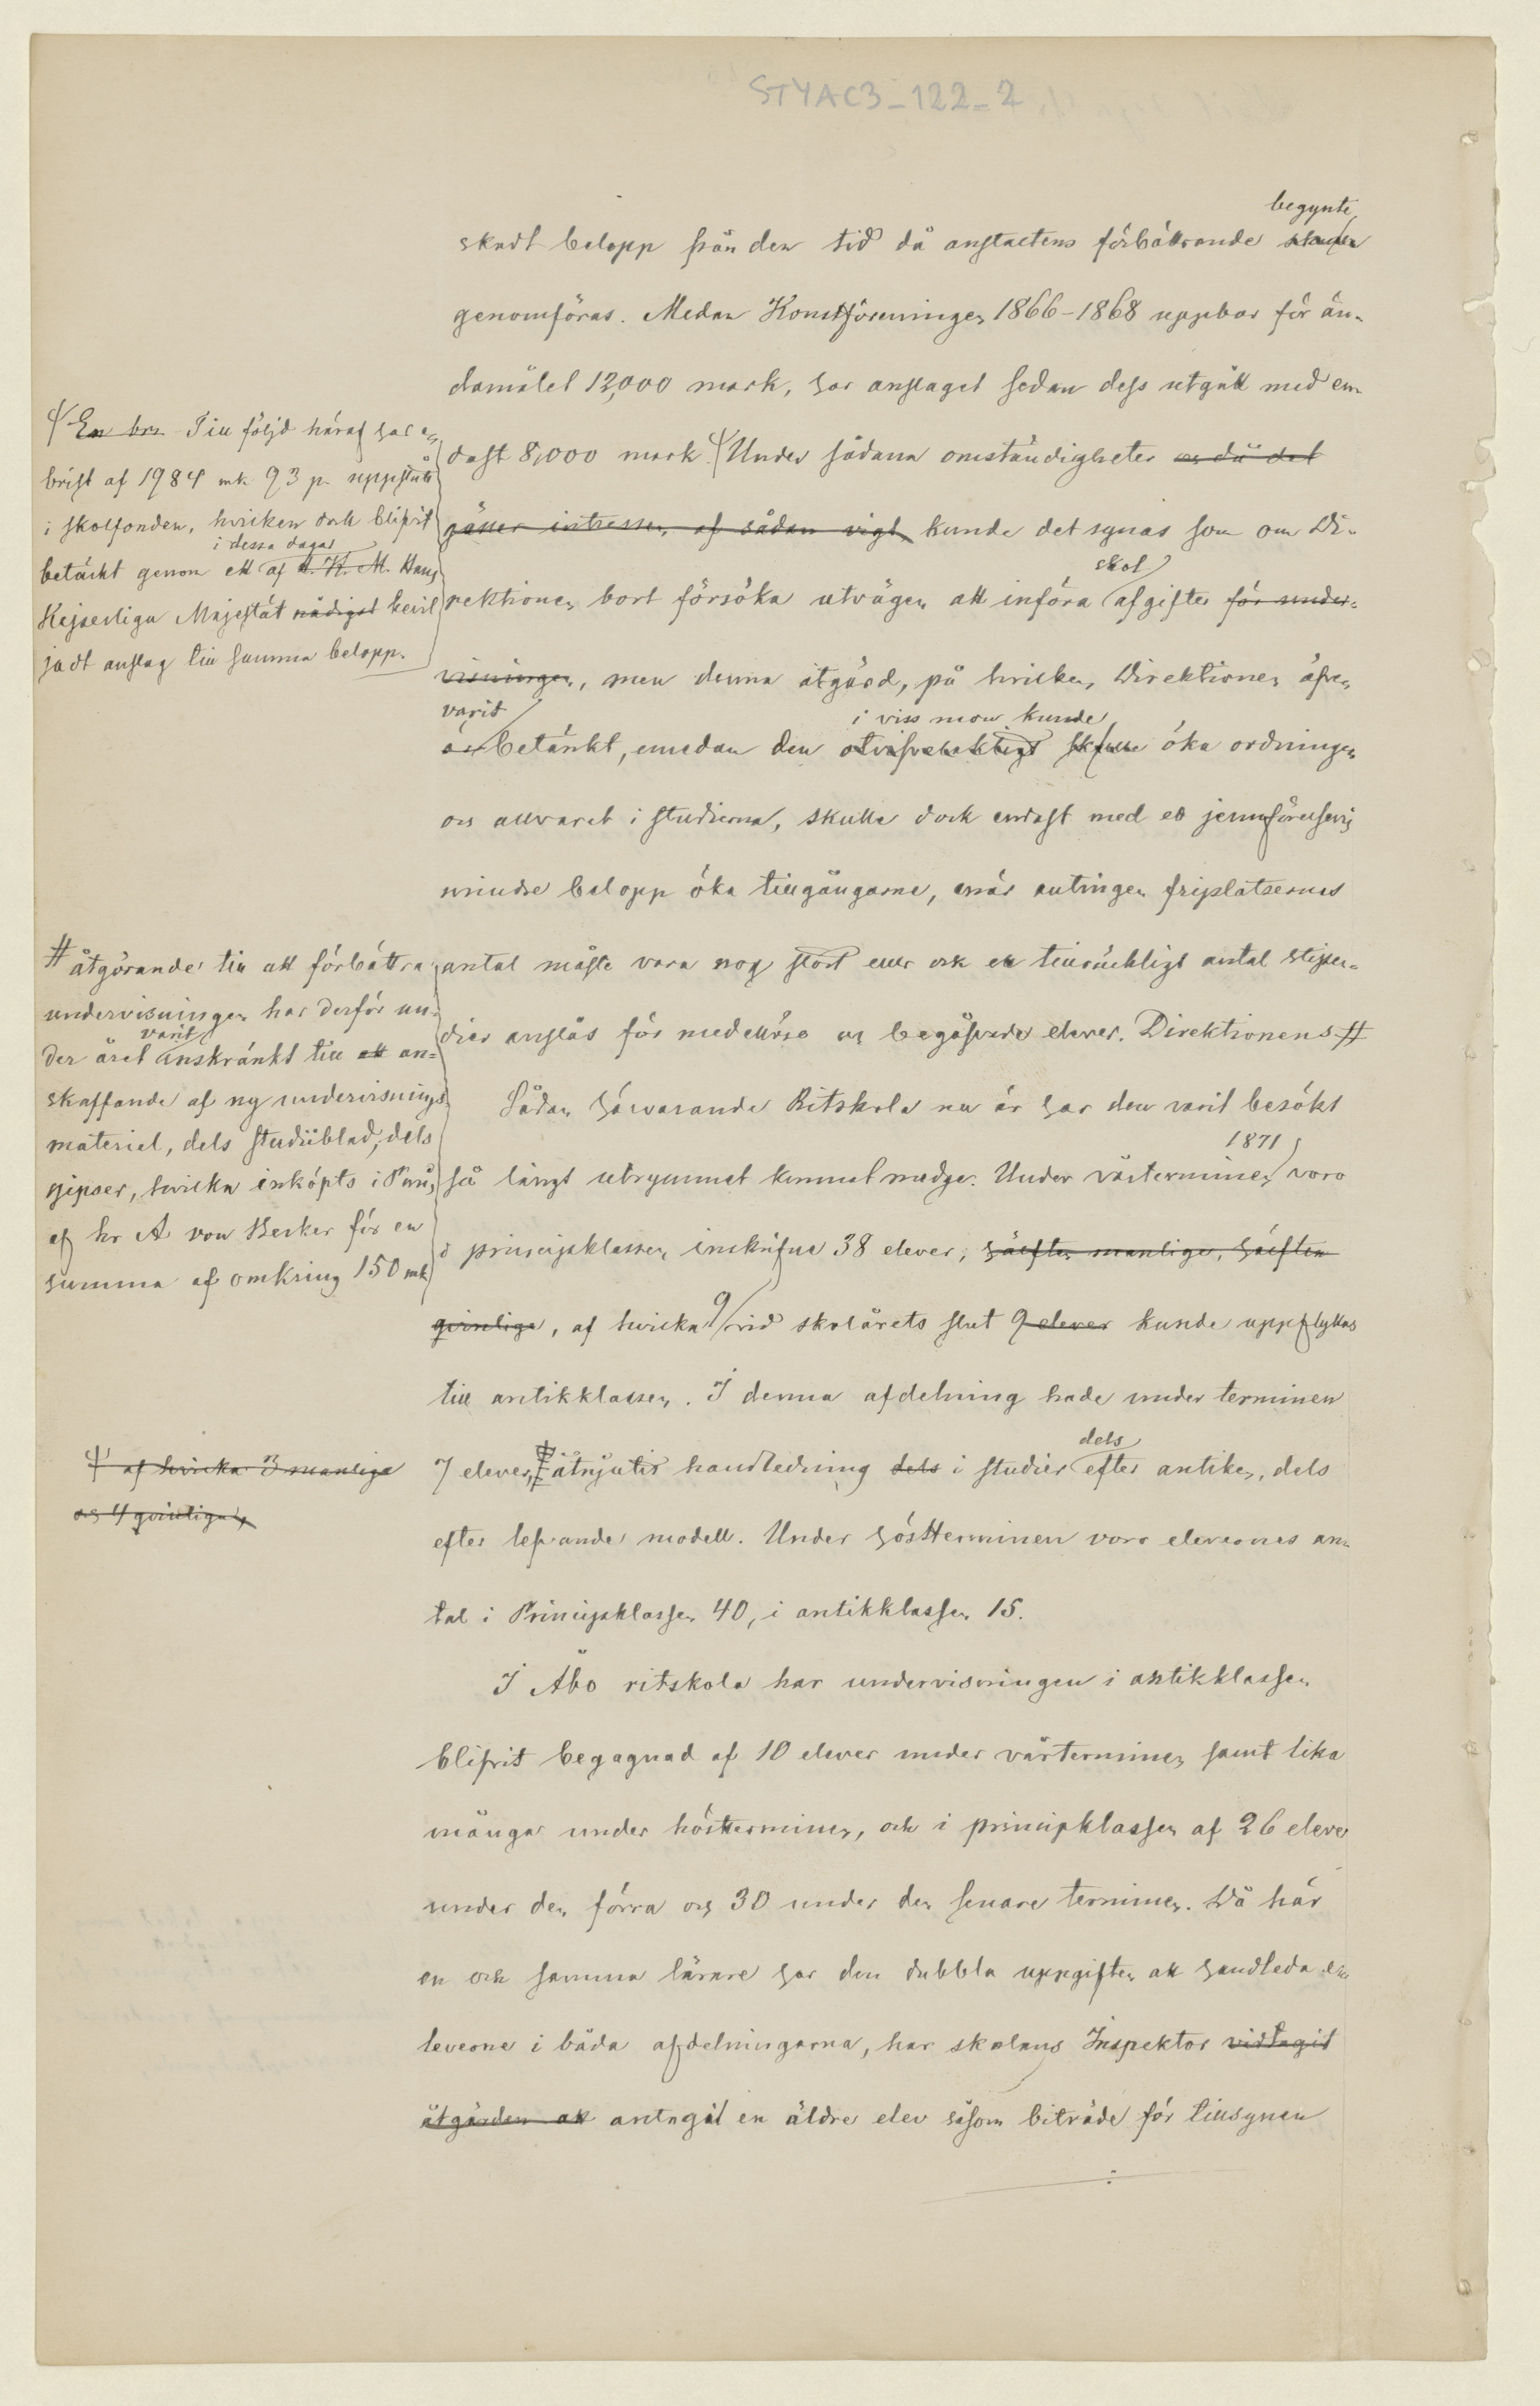 STYAC3_122_2
begynte
skadt belopp från den tid då anstaltens förbättrande skulle
genomföras. Medan Konstföreningen 1866-1868 uppbar för än-
damålet 12,000 mark, har anslaget sedan dess utgått med en-
dast 8,000 mark. Under sådana omständigheter och då det
gäller intressen af sådan vigt, kunde det synas som om Di-
skol
rektionen bort försöka utvägen att införa afgifter för under-
visningen, men denna åtgärd, på hvilken Direktionen äfven
varit
i viss mon kunde
är betänkt, emedan den otvifvelaktigt skulle öka ordningen
och allvaret i studierna, skulle dock endast med ett jemnförelsevis
mindre belopp öka tillgångarne, enär antingen friplatsernas
antal måste vara nog stort eller ock ett tillräckligt antal stipen-
dier anslås för medellösa och begåfvade elever. Direktionens #
Sådan härvarande Ritskola nu är har den varit besökt
1871
så långt utrymmet kunnat medge. Under vårterminen voro
i principklassen inskrifne 38 elever, hälften manliga, hälften
qvinliga, af hvilka 9 vid skolårets slut 9 elever kunde uppflyttas
till antikklassen. I denna afdelning hade under terminen
dels
7 elever åtnjutit handledning dels i studier efter antiken, dels
efter lefvande modell. Under höstterminen voro elevernes an-
tal i Principklassen 40, i antikklassen 15.
I Åbo ritskola har undervisningen i antikklassen
blifvit begagnad af 10 elever under vårterminen samt lika
många under höstterminen, och i principklassen af 26 elever
under den förra och 30 under den senare terminen. Då här
en och samma lärare har den dubbla uppgiften att handleda e-
leverne i båda afdelningarna, har skolans Inspektor vidtagit
åtgärden att antagit en äldre elev såsom biträde för tillsynen
En bris Till följd häraf har en
brist af 1984 mk 93 p. uppstått
i skolfonden, hvilken dock blifvit
i dessa dagar
betäckt genom ett af H. K. M. Hans
Kejserliga Majestät nådigst bevil-
jadt anslag till samma belopp.
# åtgörande till att förbättra
undervisningen har derför un-
varit
der året inskränkt till att an-
skaffande af ny undervisnings
materiel, dels studiiblad, dels
gipser, hvilka inköpts i Paris
af hr A von Becker för en
summa af omkring 150 mk
af hvilka 3 manliga
och 4 qvinliga,